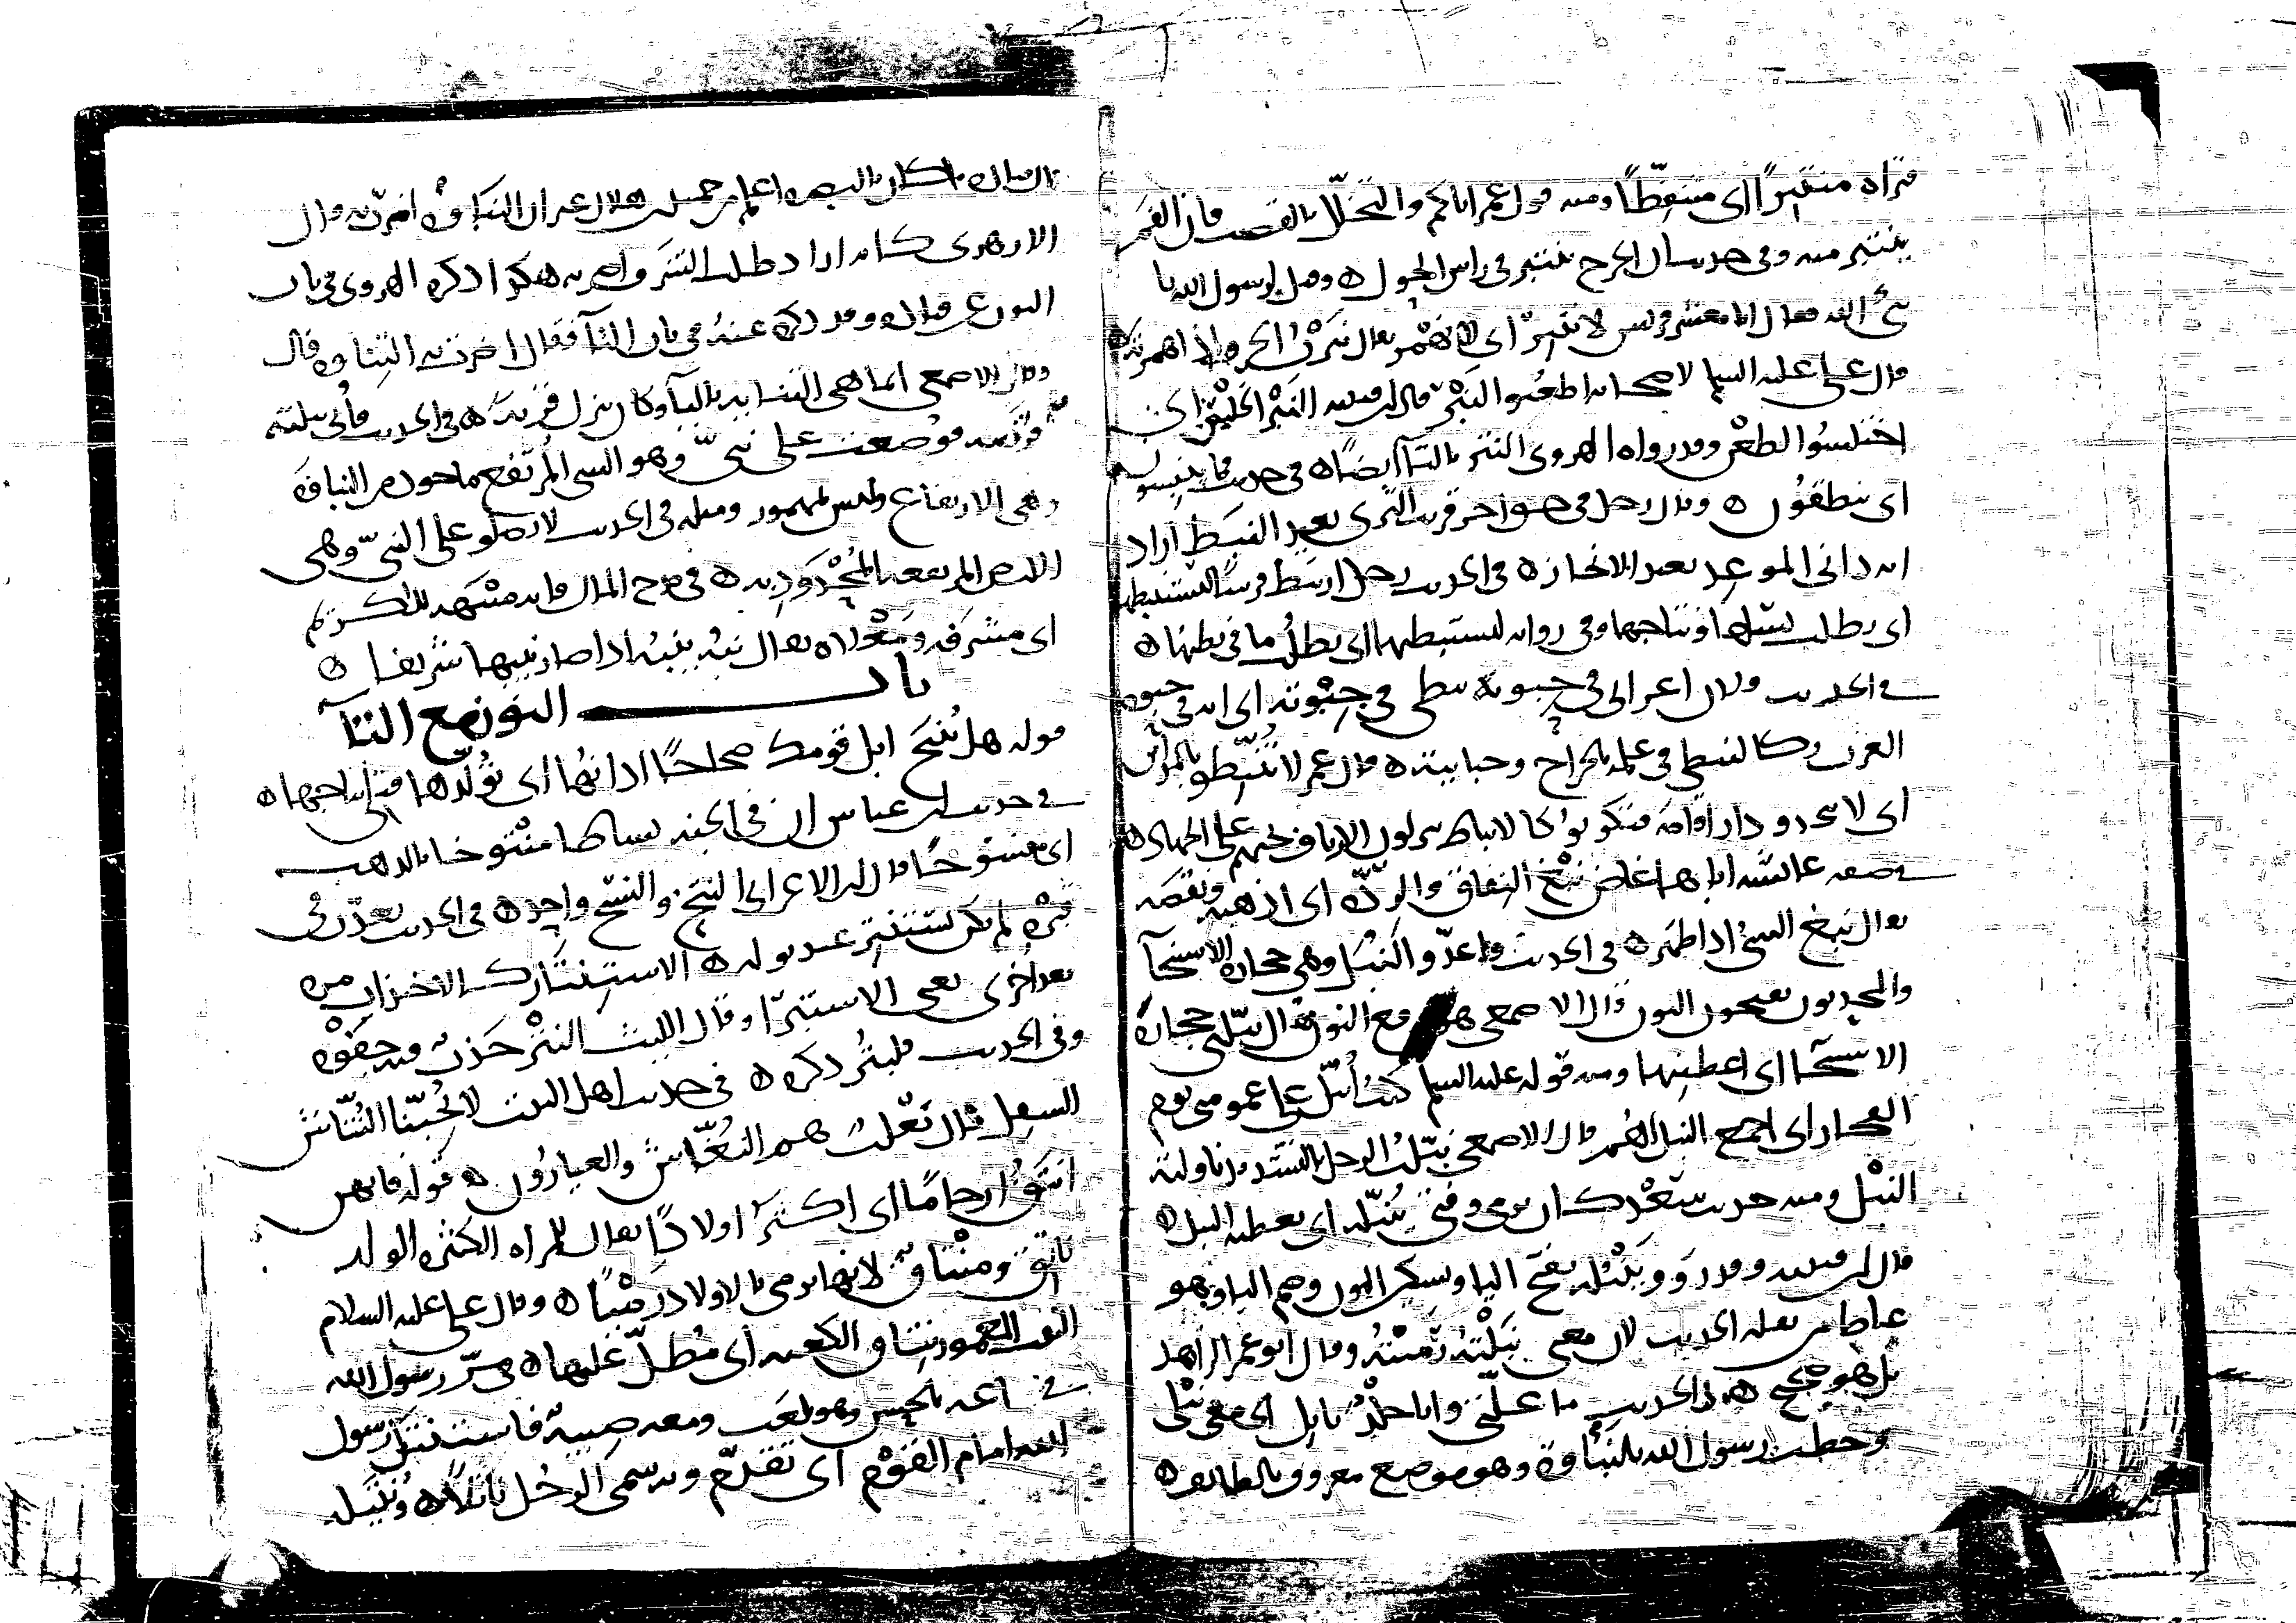 فتراه منتبرا اى متنفطا ومنه قول عمر اياكم والتخلل بالقصب فان الفم
ينتبر منه وفى حديث ان الجرح ينتبر فى راس الحول ٥ وقيل لرسول الله يا
نبىء الله فقال انا معشر قريش لا ننبر اى لا نهمز يقال نبرت الحرف اذا همزته ٥
قال على عليه السلم لاصحابه اطعنوا النبر قال ابن قتيبه النبر الخلس اى
اختلسوا الطعن وقد رواه الهروى النتر بالتا ايضا ٥ فى حديث فما ينبسون
اى ينطقون ٥ وقال رجل فى صفه اخر قريب الثرى بعيد النبط اراد
انه دانى الموعد بعيد الانجاز ٥ فى الحديث رجل ارتبط فرسا ليستنبطها
اى يطلب نسلها ونتاجها وفى روايه ليستبطنها اى يطلب ما فى بطنها ٥
فى الحديث وقال اعرابى فى حبوته نبطى فى جبوته اى انه فى حبوه
العرب وكالنبطى فى علمه بالخراج وجبايته ٥ قال عمر لا تنبطوا بالمداين
اى لا تتخذوها دار اقامه فتكونوا كالانباط ينزلون الارياف فحثهم على الجهاد ٥
فى صفه عائشه اباها غاض نبغ النفاق والردة اى اذهبه ونقصه
يقال نبغ الشئ اذا ظهر ٥ فى الحديث واعدوا النبل وهى حجارة الاستنجا
والمحدثون يفتحون النون قال الاصمعى هو برفع النون يقال نبلنى حجارة
الاستنجا اى اعطنيها ومنه قوله عليه السلم كنت انبل على عمومتى يوم
الفجار اى اجمع النبل لهم قال الاصمعى نبلت الرجل بالتشديد ناولته
النبل ومنه حديث سعد كان يرمى وفتى ينبله اى يعطيه النبل ٥
قال ابن قتيبه وقد روو وينبله بفتح اليا وتسكين النون وضم البا وهو
غلط من نقله الحديث لان معنى نبلته رميته وقال ابو عمر الزاهد
بل هو صحيح ٥ فى الحديث ما علتى وانا جلد نابل اى معى نبلى
وخطب رسول الله بالنباوة وهو موضع معروف بالطائف ٥
قال قتاده ما كان بالبصره اعلم من حميد بن هلال غير ان النباوة اضرت به قال
الازهرى كانه اراد طلب الشرف اضر به هكذا ذكره الهروى فى باب
النون مع البا وقد ذكره عنه فى باب التا فقال اضرت به التناوه قال
وقال الاصمعى انما هى التنايه بالتا وكان ينزل قريه ٥ فى الحديث فاتى بثلثه
قرصه فوضعت على نبى وهو الشى المرتفع ماخوذ من النباوه
وهى الارتفاع وليس بمهموز ومثله فى الحديث لا تصلوا على النبى وهى
الارض المرتفعه المحدودبه ٥ فى مدح المال فانه منبهه للكريم
اى مشرفه ومعلاه يقال نبه ينبه اذا صار نبيها شريفا ٥
باب النون مع التا
قوله هل تنتج ابل قومك صحاحا اذانها اى تولدها فتلى نتاجها ٥
فى حديث ابن عباس ان فى الجنه بساطا منتوخا بالذهب
اى منسوجا قال ابن الاعرابى النتخ والنسج واحد ٥ فى الحديث يعذب فى
قبره لم يكن يستنتر عند بوله ٥ الاستنتار كالاجتذاب مره
بعد اخرى يعنى الاستبرا وقال الليث النتر جذب فيه جفوه
وفى الحديث فلينتر ذكره ٥ فى حديث اهل البيت لا يحبنا النتاش
السفل قال ثعلب هم النغاش والعيارون ٥ قوله فانهن
انتق ارحاما اى اكثر اولادا يقال للمراه الكثيره الولد
ناتق ومنتاق لانها ترمى بالاولاد رميا ٥ وقال على عليه السلام
البيت المعمور نتاق الكعبه اى مطل عليها ٥ مر رسول الله
بالحسين وهو يلعب ومعه صبيه فاستنتل رسول
الله امام القوم اى تقدم وبه سمى الرجل ناتلا ٥ ونتيله